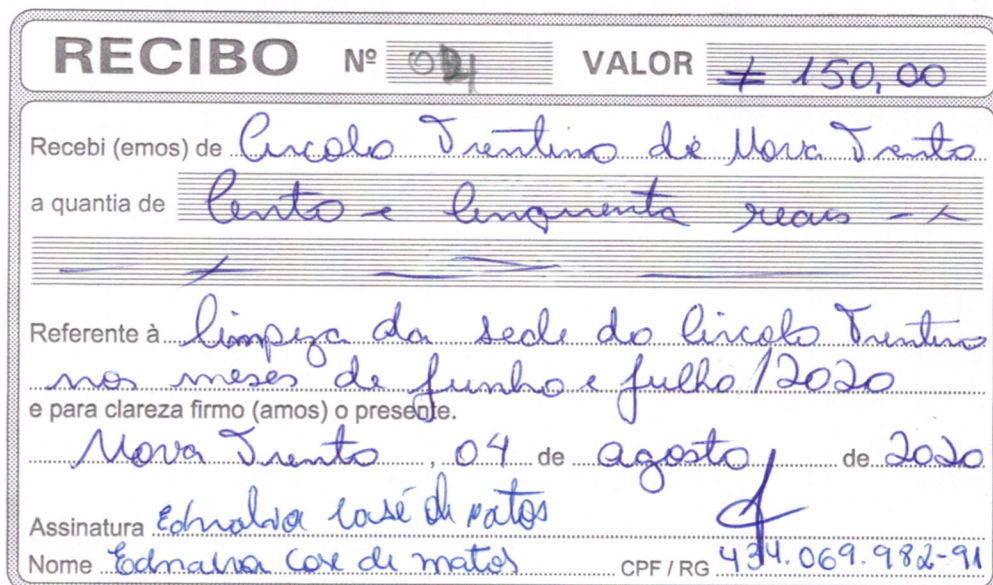 RECIBO Nº VALOR ≠ 150,00
Recebi (emos) de Circolo Trentino de Nova Trento
a quantia de Cento e Cinquenta reais
Referente à limpeza da sede do Circolo Trentino
nos meses de junho e julho/2020
e para clareza firmo (amos) o presente.
Nova Trento, 04 de agosto de 2020
Assinatura de matos
Nome de matos CPF / RG 434.069.982-91